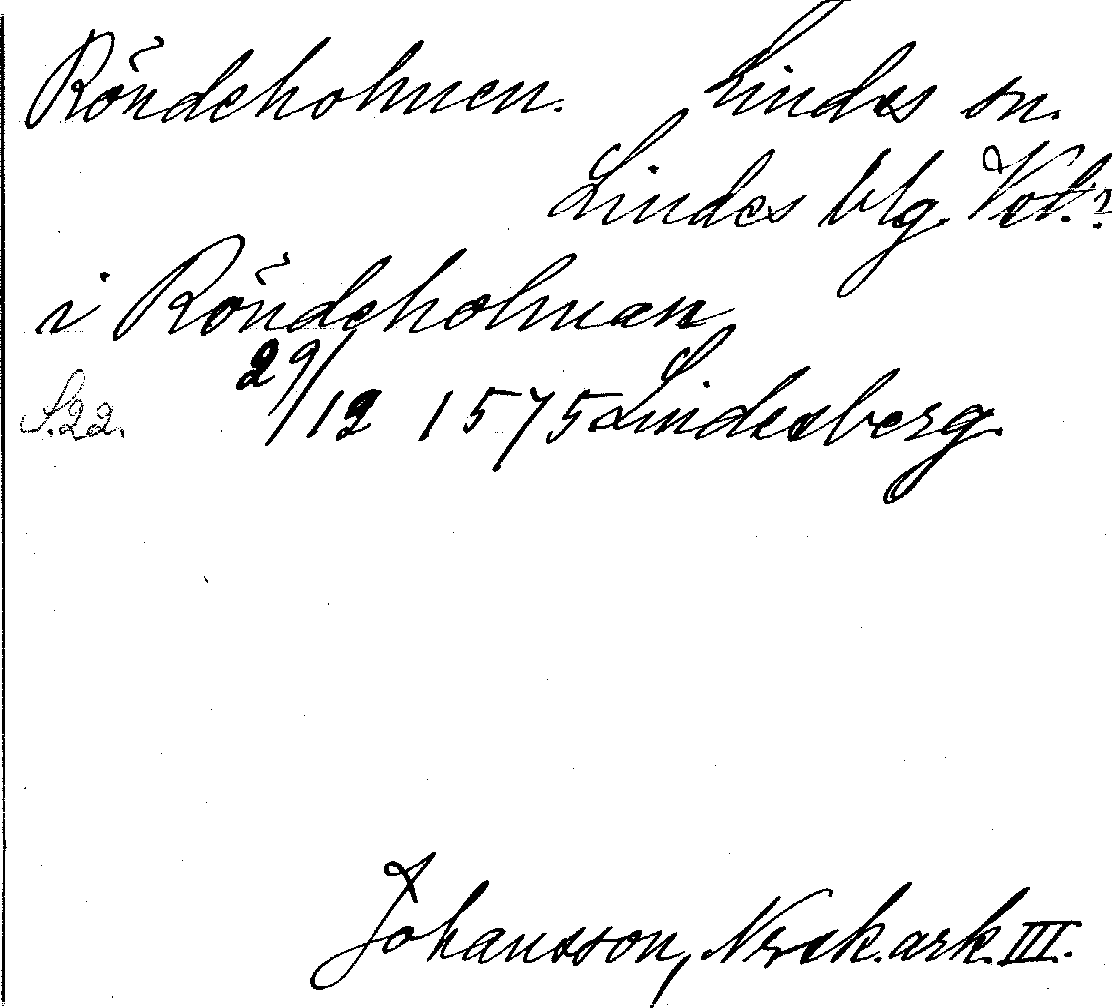 Röndeholmen. Lindes sn.
Lindes blg. Vst.?
i Röndeholman
S.22. 29/12 1575 Lindesberg.
Johansson, Nrsk.ark. III.